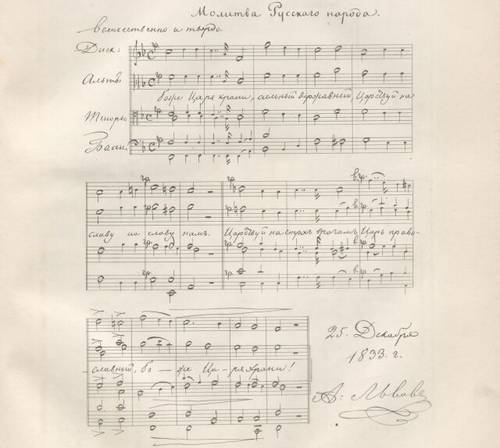 Молитва Русского народа.
Дискъ:
Альтъ
Теноры
Басы
Боже Царя храни, сильный державный, Царствуй на
славу на славу намъ. Царствуй на страхъ врагамъ Царь право-
славный, бо - же Ца - ря храни!
25. Декабря
1833. г.
А: Львовъ